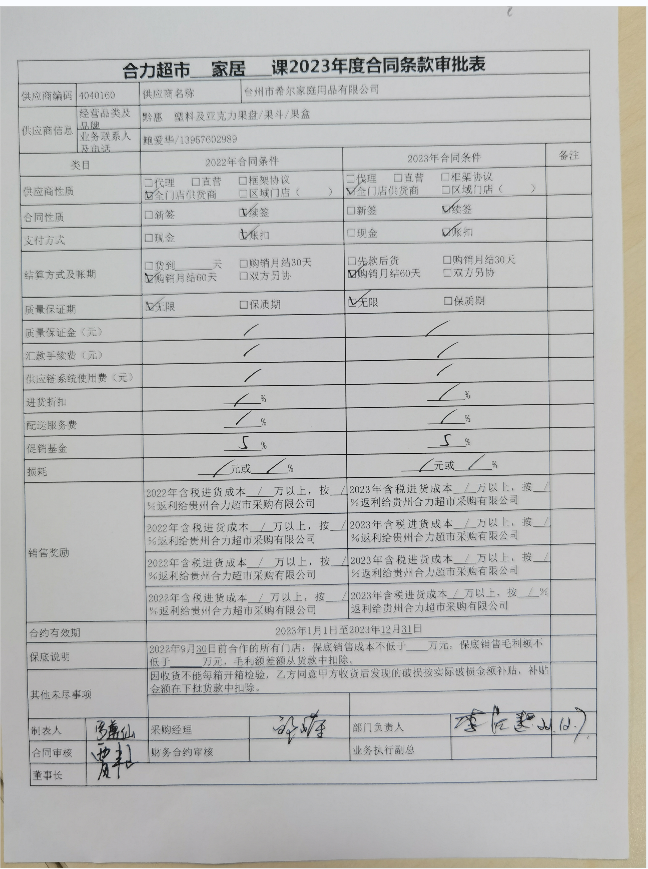 合力超市 家居 课2023年度合同条款审批表
供应商编码 4040160 供应商名称 台州市希尔家庭用品有限公司
供应商信息 经营品类及品牌 黔惠 塑料及亚克力果盘/果斗/果盒
业务联系人及电话 /13957602989
类目 2022年合同条件 2023年合同条件 备注
供应商性质 □代理 □直营 □框架协议 □代理 □直营 □框架协议
☑全门店供货商 □区域门店（ ） ☑全门店供货商 □区域门店（ ）
合同性质 □新签 ☑续签 □新签 ☑续签
支付方式 □现金 ☑账扣 □现金 ☑账扣
结算方式及账期 □货到____天 □购销月结30天 □先款后货 □购销月结30天
☑购销月结60天 □双方另协 ☑购销月结60天 □双方另协
质量保证期 ☑无限 □保质期 ☑无限 □保质期
质量保证金（元） / /
汇款手续费（元） / /
供应链系统使用费（元） / /
进货折扣 / % / %
配送服务费 / % / %
促销基金 5 % 5 %
损耗 / 元或 / % / 元或 / %
销售奖励 2022年含税进货成本__/__万以上，按__/ 2023年含税进货成本__/__万以上，按__/
%返利给贵州合力超市采购有限公司 %返利给贵州合力超市采购有限公司
2022年含税进货成本__/__万以上，按__/ 2023年含税进货成本__/__万以上，按__/
%返利给贵州合力超市采购有限公司 %返利给贵州合力超市采购有限公司
2022年含税进货成本__/__万以上，按__/ 2023年含税进货成本__/__万以上，按__/
%返利给贵州合力超市采购有限公司 %返利给贵州合力超市采购有限公司
2022年含税进货成本__/__万以上，按__/ 2023年含税进货成本__/__万以上，按__/%
%返利给贵州合力超市采购有限公司 返利给贵州合力超市采购有限公司
合约有效期 2023年1月1日至2023年12月31日
保底说明 2022年9月30日前合作的所有门店：保底销售成本不低于____万元；保底销售毛利额不
低于______万元，毛利额差额从货款中扣除。
其他未尽事项 因收货不能每箱开箱检验，乙方同意甲方收货后发现的破损按实际破损金额补贴，补贴
金额在下批货款中扣除。
制表人 采购经理 部门负责人
合同审核 财务合约审核 业务执行副总
董事长